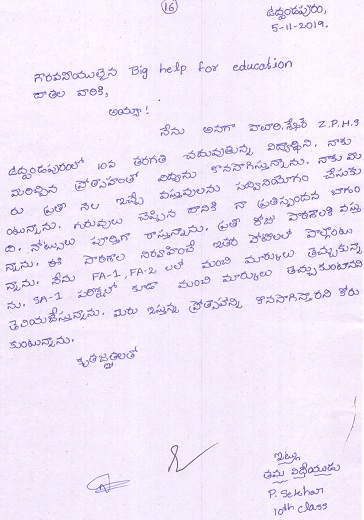 (16)
ఉద్దండపురం,
5-11-2019.
గౌరవనీయులైన Big help for education
దాతల వారికి,
అయ్యా!
నేను అనగా పాచారి. శేఖర్ Z.P.H.S
ఉద్దండపురంలో 10వ తరగతి చదువుతున్న విద్యార్థిని. నాకు
మరిచ్చిన ప్రోత్సాహంతో విద్యను కొనసాగిస్తున్నాను. నాకు మీ
రు ప్రతి నెల ఇచ్చే వస్తువులను సద్వినియోగం చేసుకు
ంటున్నాను. గురువులు చెప్పిన దానికి నా ప్రతిస్పందన బాగుం
ది. నోట్సులు పూర్తిగా రాస్తున్నాను. ప్రతి రోజు పాఠశాలకి వస్తు
న్నాను. ఈ పాఠశాల నిర్వహించే ఇతర పోటీలలో పాల్గొంటు
న్నాను. నేను FA-1, FA-2 లలో మంచి మార్కులు తెచ్చుకున్నా
ను. SA-1 పరీక్షల్లో కూడా మంచి మార్కులు తెచ్చుకుంటానని
తెలియజేస్తున్నాను. మీరు ఇస్తున్న ప్రోత్సాహాన్ని కొనసాగిస్తారని కోరు
కుంటున్నాను.
కృతజ్ఞతలతో
ఇట్లు
తమ విధేయుడు
P. Sekhar
10th class